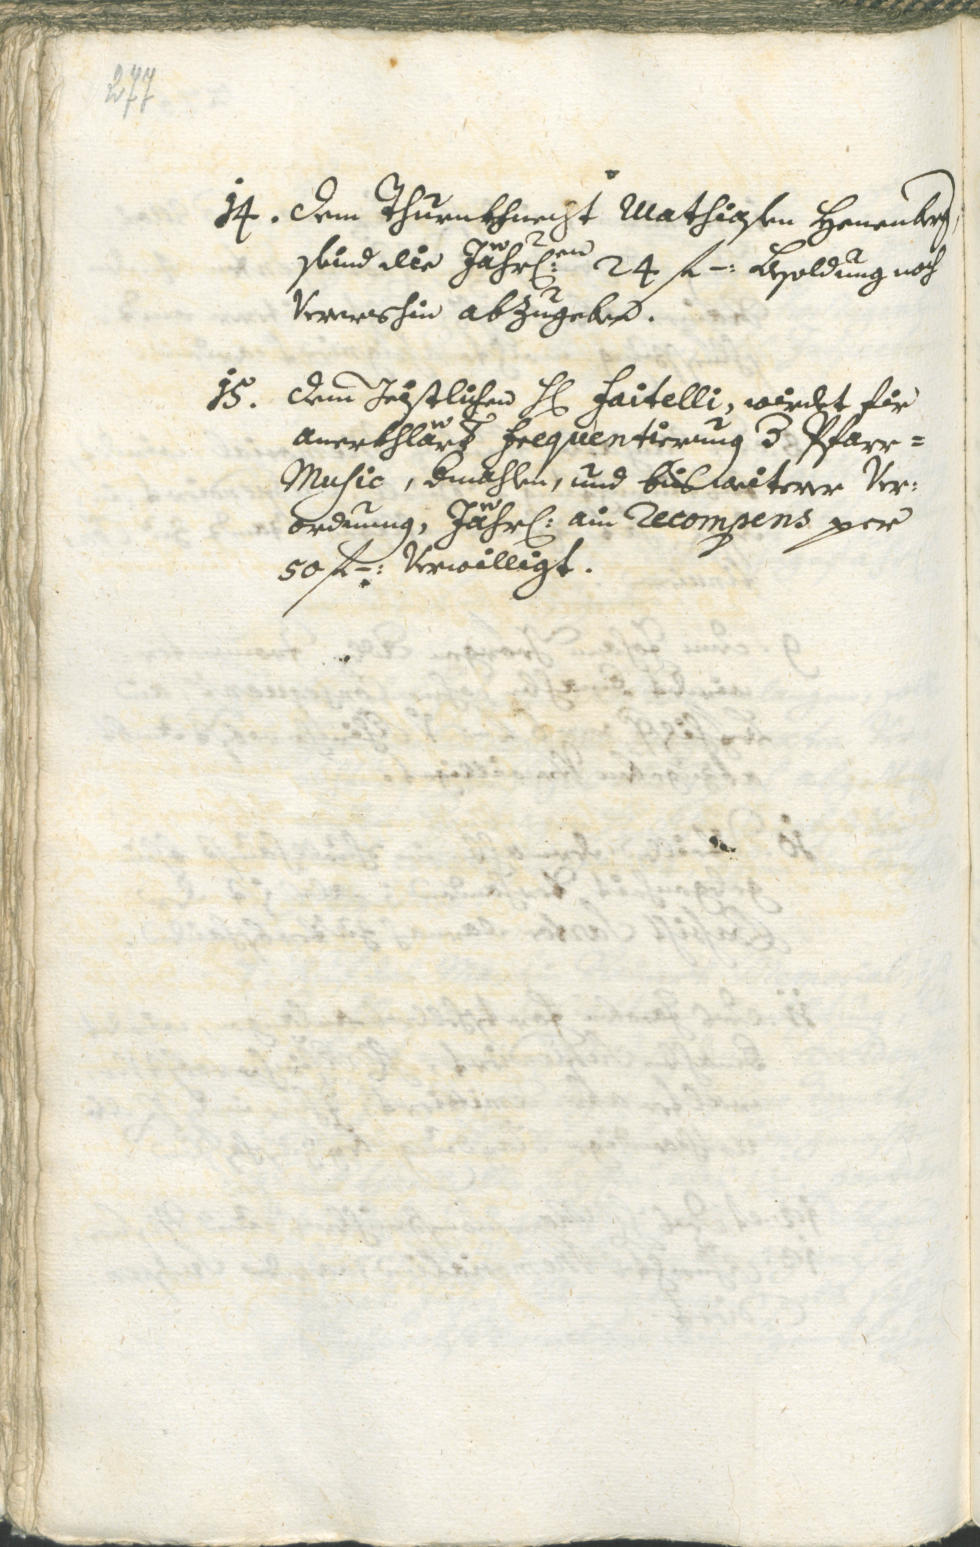 277
14. dem Thurnkhnecht Mathiaßen Henenberg,
seind die Jährl:en 24 f –: Besoldung noch
Vorershin abzugeben.
15. dem Geistlichen H: Faitelli, wirdet für
anerkhlärte frequentierung Pfarr=
Music, dmahlen, und bis weiterer Ver:
ordnung, Jährl: ain Recompens per
50 f –: Verwilligt.